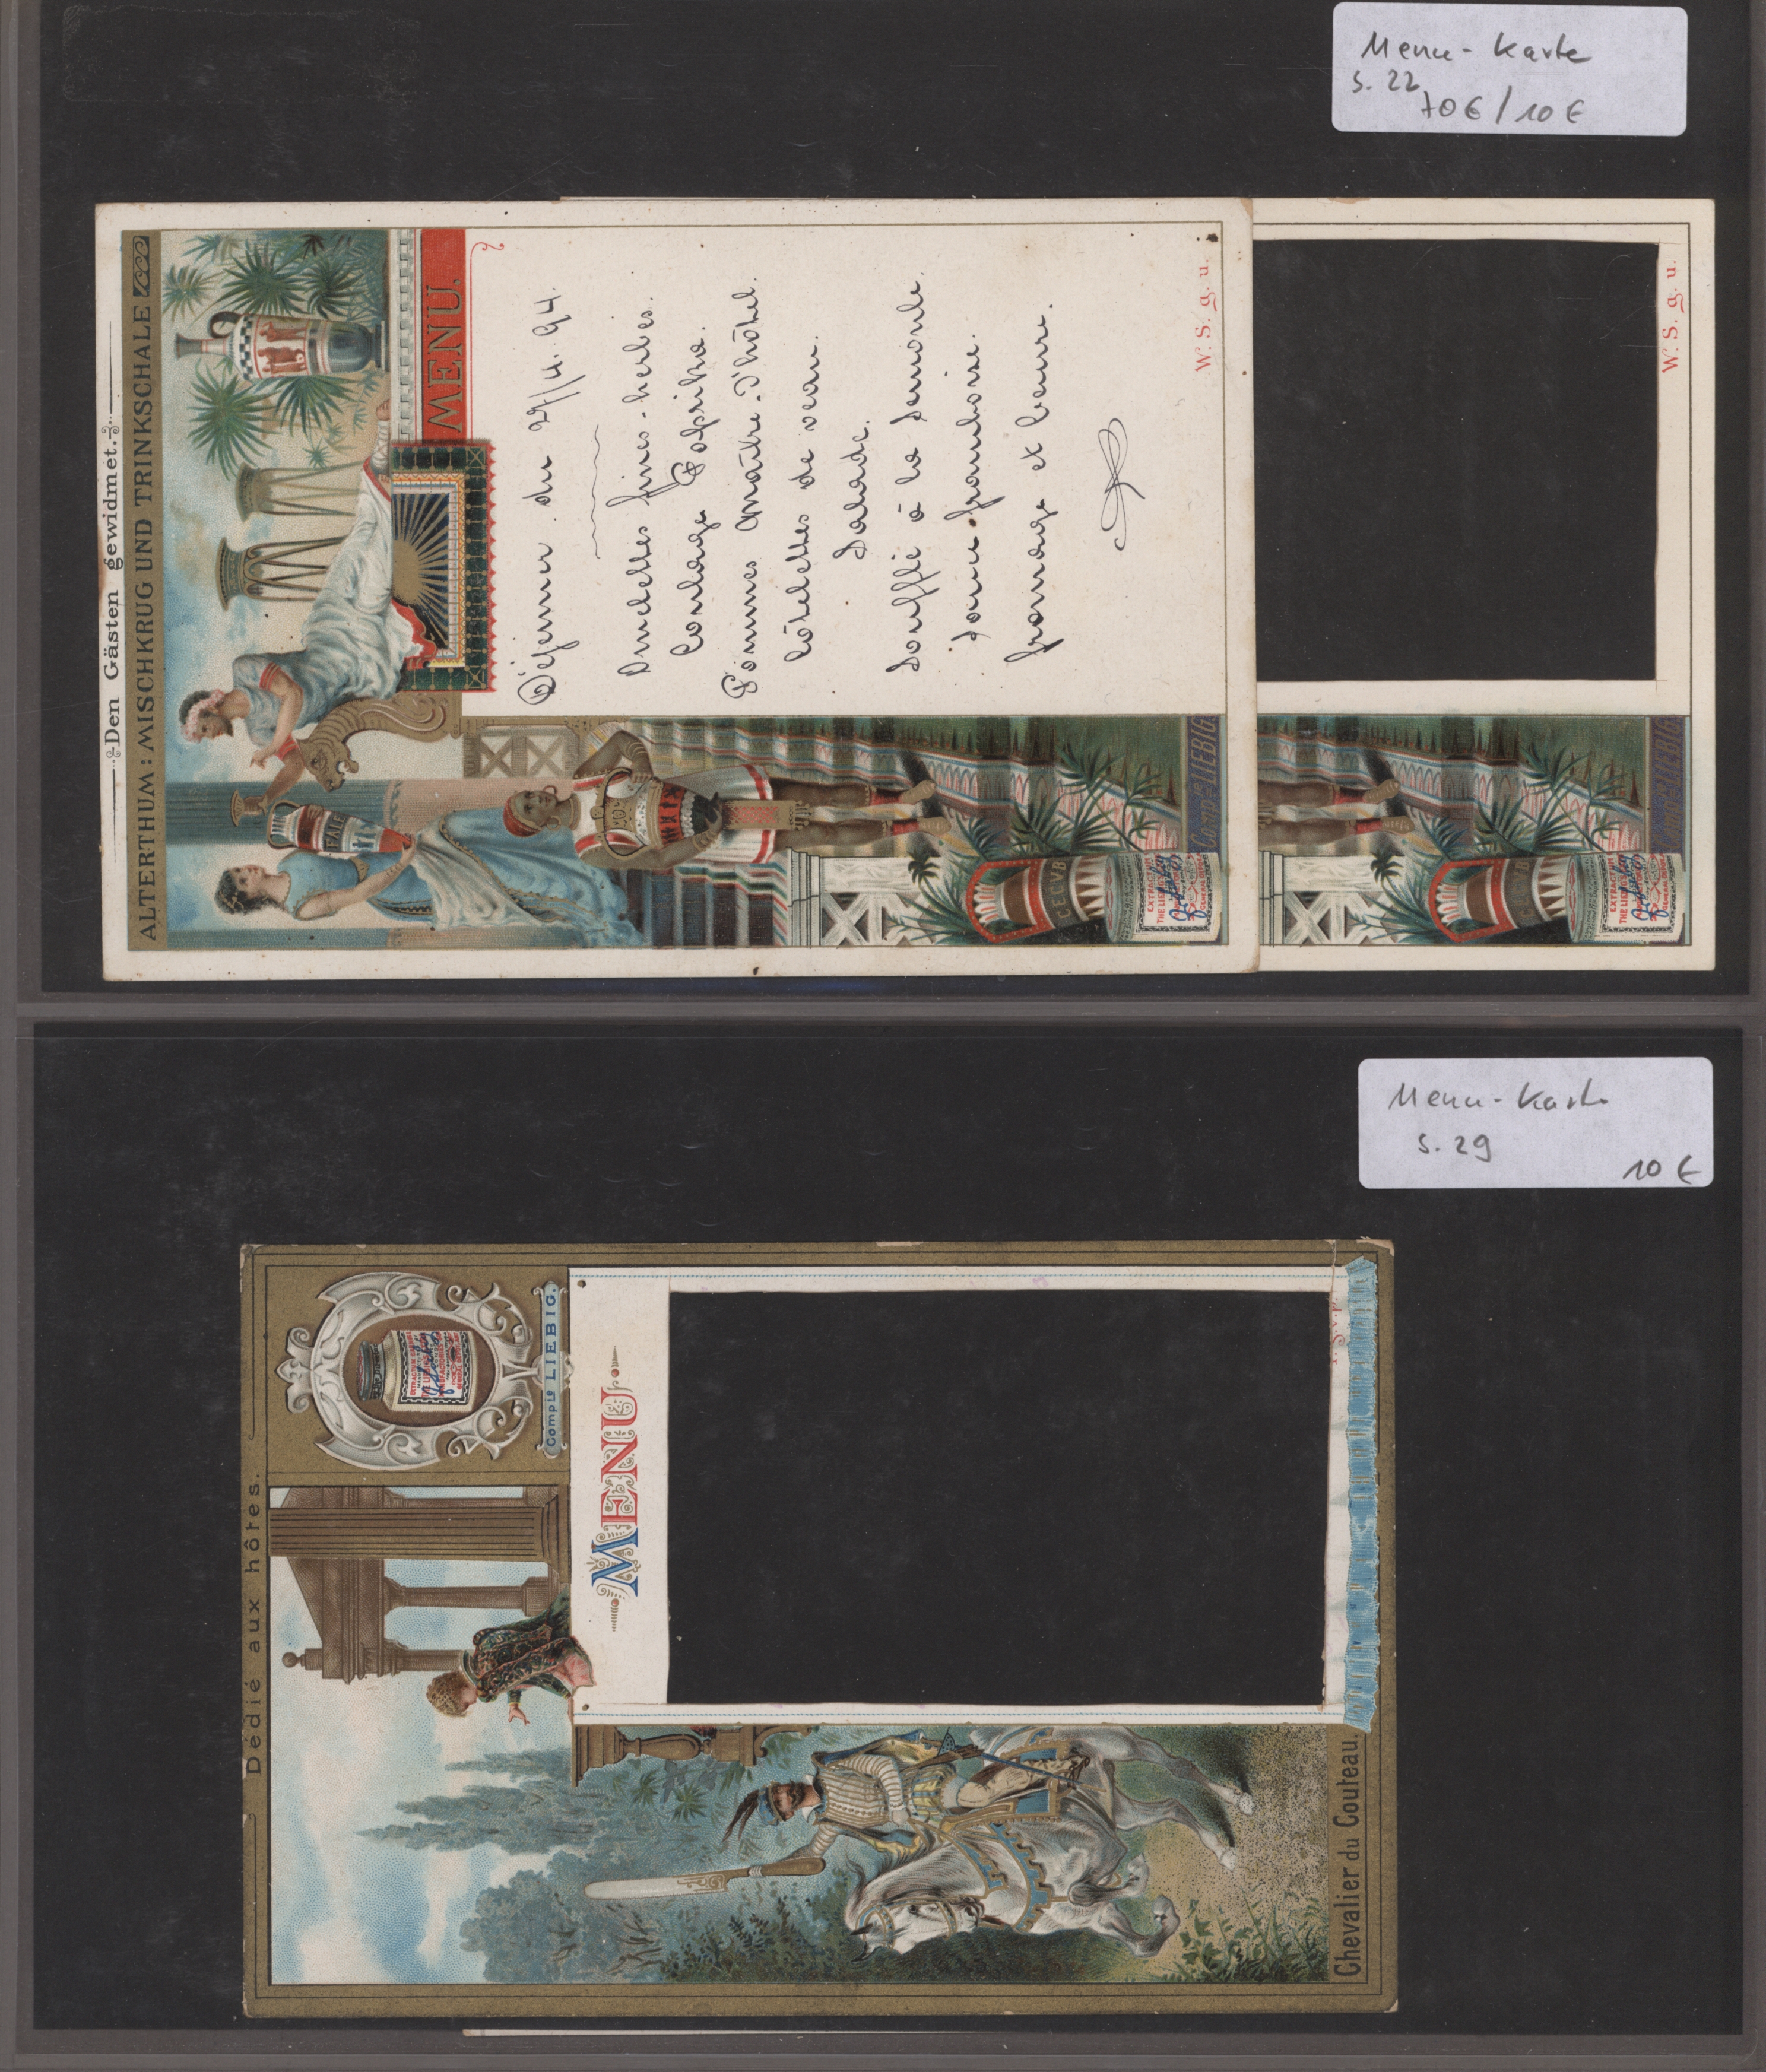 Menu - Karte
S. 22
70 € / 10 €
Den Gästen gewidmet.
ALTERTHUM: MISCHKRUG UND TRINKSCHALE
MENU.
Déjeuner du 29/4. 94.
Omelettes fines-herbes.
Paprika.
Pommes maître-d'hôtel
Côtelettes de veau.
Salade.
Soufflé à la Semoule.
Sauce framboise.
fromage et beurre.
W. S. g. u.
W. S. g. u.
FALE
CECVB
CECVB
Compie LIEBIG
LIEBIG
Menu - Karte
S. 29
10 €
Dédié aux hôtes.
Compie LIEBIG.
MENU
Chevalier du Couteau.